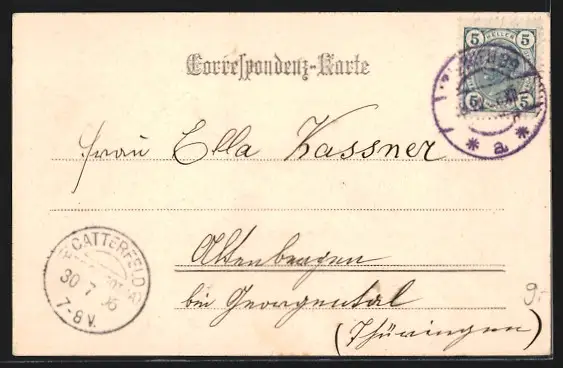 Correspondenz-Karte
5 HELLER 5
5 5
* a *
Frau Ella Kassner
Altenbergen
bei Georgental
(Thüringen)
CATTERFELD
30 7 06
7-8 V.
9.-